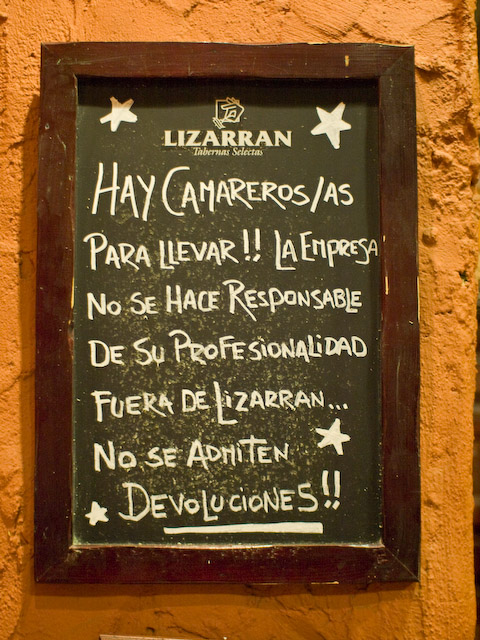 LIZARRAN
Tabernas Selectas
HAY CAMAREROS/AS
PARA LLEVAR!! LA EMPRESA
NO SE HACE RESPONSABLE
DE SU PROFESIONALIDAD
FUERA DE LIZARRAN...
NO SE ADMITEN
DEVOLUCIONES!!